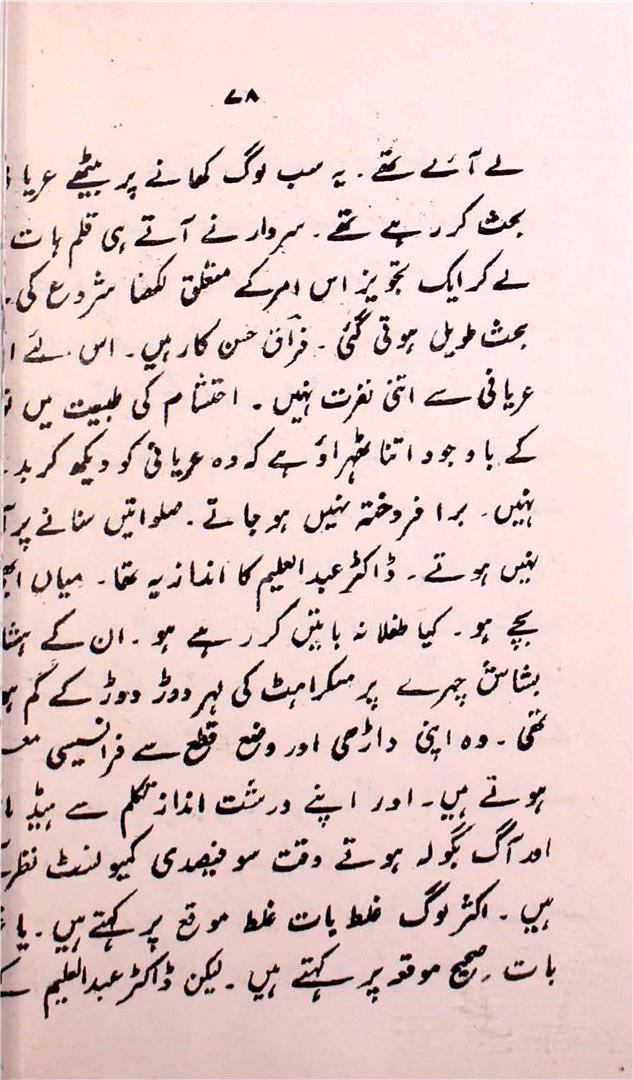 ۷۸
لے آئے تھے۔ یہ سب لوگ کھانے پر بیٹھے
بحث کر رہے تھے۔ سردار نے آتے ہی قلم ہات
لے کر ایک تجویز اس امر کے متعلق لکھنا شروع کی۔
بحث طویل ہوتی گئی۔ فراق حسن کار ہیں۔ اس لئے
عریانی سے اتنی نفرت نہیں۔ احتشام کی طبیعت میں
کے باوجود اتنا ٹھہراؤ ہے کہ وہ عریانی کو دیکھ کر
نہیں۔ برا فروختہ نہیں ہو جاتے۔ صلواتیں سنانے پر
نہیں ہوتے۔ ڈاکٹر عبدالعلیم کا انداز یہ تھا۔ میاں
بچے ہو۔ کیا طفلانہ باتیں کر رہے ہو۔ ان کے
بشاش چہرے پر مسکراہٹ کی لہر دوڑ دوڑ کے گم
تھی۔ وہ اپنی داڑھی اور وضع قطع سے فرانسیسی
ہوتے ہیں۔ اور اپنے درشت انداز تکلم سے ہیڈ
اور آگ بگولہ ہوتے وقت سو فیصدی کمیونسٹ
ہیں۔ اکثر لوگ غلط بات غلط موقع پر کہتے ہیں۔ یا
بات صحیح موقعہ پر کہتے ہیں۔ لیکن ڈاکٹر عبدالعلیم